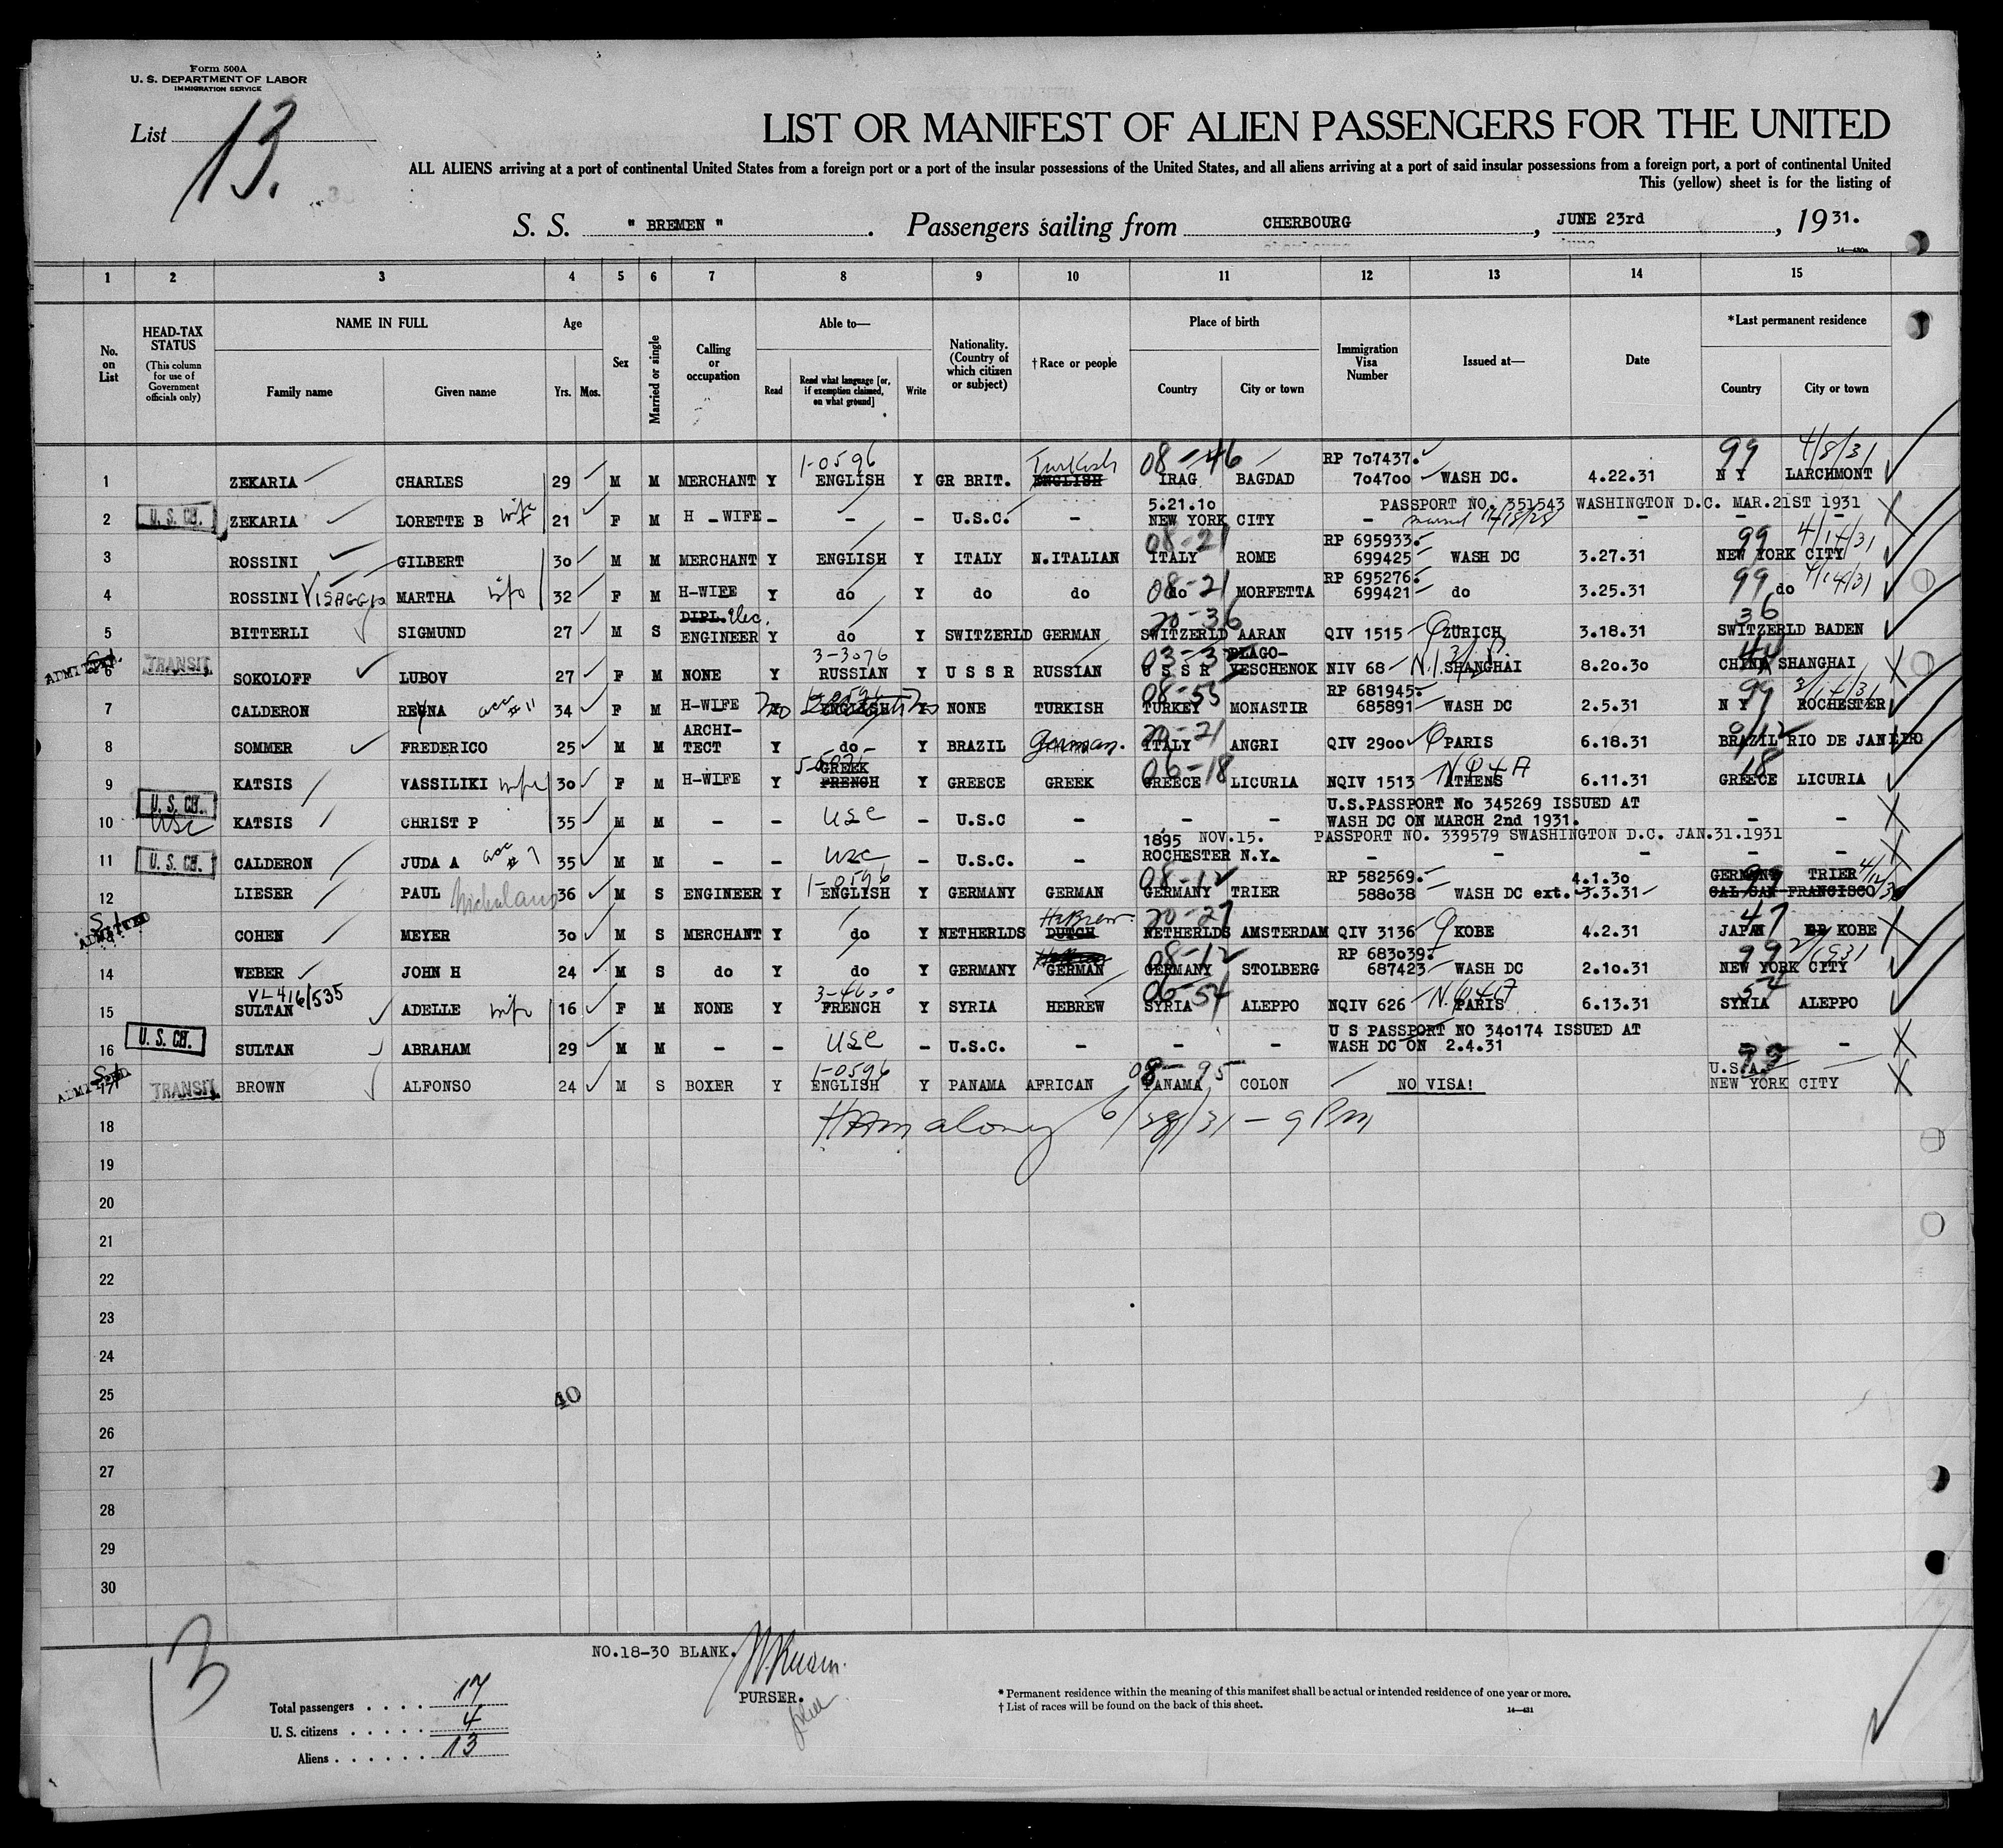 Form 500A
U. S. DEPARTMENT OF LABOR
IMMIGRATION SERVICE
List 13.
LIST OR MANIFEST OF ALIEN PASSENGERS FOR THE UNITED
ALL ALIENS arriving at a port of continental United States from a foreign port or a port of the insular possessions of the United States, and all aliens arriving at a port of said insular possessions from a foreign port, a port of continental United
This (yellow) sheet is for the listing of
S. S. " BREMEN " . Passengers sailing from CHERBOURG , JUNE 23rd , 19 31.
14—430a
1 2 3 4 5 6 7 8 9 10 11 12 13 14 15
No. on List
HEAD-TAX STATUS (This column for use of Government officials only)
NAME IN FULL
Family name Given name
Age Yrs. Mos.
Sex
Married or single
Calling or occupation
Able to—
Read Read what language [or, if exemption claimed, on what ground] Write
Nationality. (Country of which citizen or subject)
†Race or people
Place of birth
Country City or town
Immigration Visa Number
Issued at—
Date
*Last permanent residence
Country City or town
1-0596 Turkish 08-46 RP 707437. 99 4/8/31
1 ZEKARIA CHARLES 29 M M MERCHANT Y ENGLISH Y GR BRIT. ENGLISH IRAG BAGDAD 704700 WASH DC. 4.22.31 N Y LARCHMONT
5.21.10 PASSPORT NO. 351543 WASHINGTON D.C. MAR.21ST 1931
2 U. S. CH. ZEKARIA LORETTE B wife 21 F M H - WIFE - - - U.S.C. - NEW YORK CITY - - -
08-21 RP 695933. 99 4/14/31
3 ROSSINI GILBERT 30 M M MERCHANT Y ENGLISH Y ITALY N.ITALIAN ITALY ROME 699425 WASH DC 3.27.31 NEW YORK CITY
08-21 RP 695276. 99 4/14/31
4 ROSSINI VISAGGIO MARTHA wife 32 F M H-WIFE Y do Y do do do MORFETTA 699421 do 3.25.31 do
DIPL. Elec. 20-36 36
5 BITTERLI SIGMUND 27 M S ENGINEER Y do Y SWITZERLD GERMAN SWITZERLD AARAN QIV 1515 ZURICH 3.18.31 SWITZERLD BADEN
ADMITTED TRANSIT 3-3076 BLAGO-
6 SOKOLOFF LUBOV 27 F M NONE Y RUSSIAN Y U S S R RUSSIAN U S S R VESCHENOK NIV 68 SHANGHAI 8.20.30 CHINA SHANGHAI
1-0596 08-53 RP 681945. 99
7 CALDERON REGNA acc #11 34 F M H-WIFE no ENGLISH no NONE TURKISH TURKEY MONASTIR 685891 WASH DC 2.5.31 N Y ROCHESTER
ARCHI- 20-21
8 SOMMER FREDERICO 25 M M TECT Y do Y BRAZIL German. ITALY ANGRI QIV 2900 PARIS 6.18.31 BRAZIL RIO DE JANEIRO
GREEK 06-18 18
9 KATSIS VASSILIKI wife 30 F M H-WIFE Y FRENCH Y GREECE GREEK GREECE LICURIA NQIV 1513 ATHENS 6.11.31 GREECE LICURIA
U. S. CH. U.S.PASSPORT No 345269 ISSUED AT
10 USC KATSIS CHRIST P 35 M M - - USC - U.S.C - - - WASH DC ON MARCH 2nd 1931. - -
1895 NOV.15. PASSPORT NO. 339579 SWASHINGTON D.C. JAN.31.1931
11 U. S. CH. CALDERON JUDA A acc #7 35 M M - - USC - U.S.C. - ROCHESTER N.Y. - - - - -
1-0596 08-12 RP 582569. 4.1.30 GERMANY TRIER
12 LIESER PAUL 36 M S ENGINEER Y ENGLISH Y GERMANY GERMAN GERMANY TRIER 588038 WASH DC ext. 3.3.31 CAL SAN FRANCISCO
ADMITTED Hebrew 20-27 47
COHEN MEYER 30 M S MERCHANT Y do Y NETHERLDS DUTCH NETHERLDS AMSTERDAM QIV 3136 KOBE 4.2.31 JAPAN KOBE
08-12 RP 683039. 99
14 WEBER JOHN H 24 M S do Y do Y GERMANY GERMAN GERMANY STOLBERG 687423 WASH DC 2.10.31 NEW YORK CITY
VL 416/535 06-54 54
15 SULTAN ADELLE wife 16 F M NONE Y FRENCH Y SYRIA HEBREW SYRIA ALEPPO NQIV 626 PARIS 6.13.31 SYRIA ALEPPO
U. S. CH. U S PASSPORT NO 340174 ISSUED AT
16 SULTAN ABRAHAM 29 M M - - USC - U.S.C. - - - WASH DC ON 2.4.31 -
ADMITTED 1-0596 08-95 U.S.A. 99
17 TRANSIT BROWN ALFONSO 24 M S BOXER Y ENGLISH Y PANAMA AFRICAN PANAMA COLON NO VISA! NEW YORK CITY
18
19
20
21
22
23
24
25
40
26
27
28
29
30
13
NO.18-30 BLANK.
PURSER.
Total passengers . . . . . 17
U. S. citizens . . . . . 4
Aliens . . . . . . 13
* Permanent residence within the meaning of this manifest shall be actual or intended residence of one year or more.
† List of races will be found on the back of this sheet.
14—431